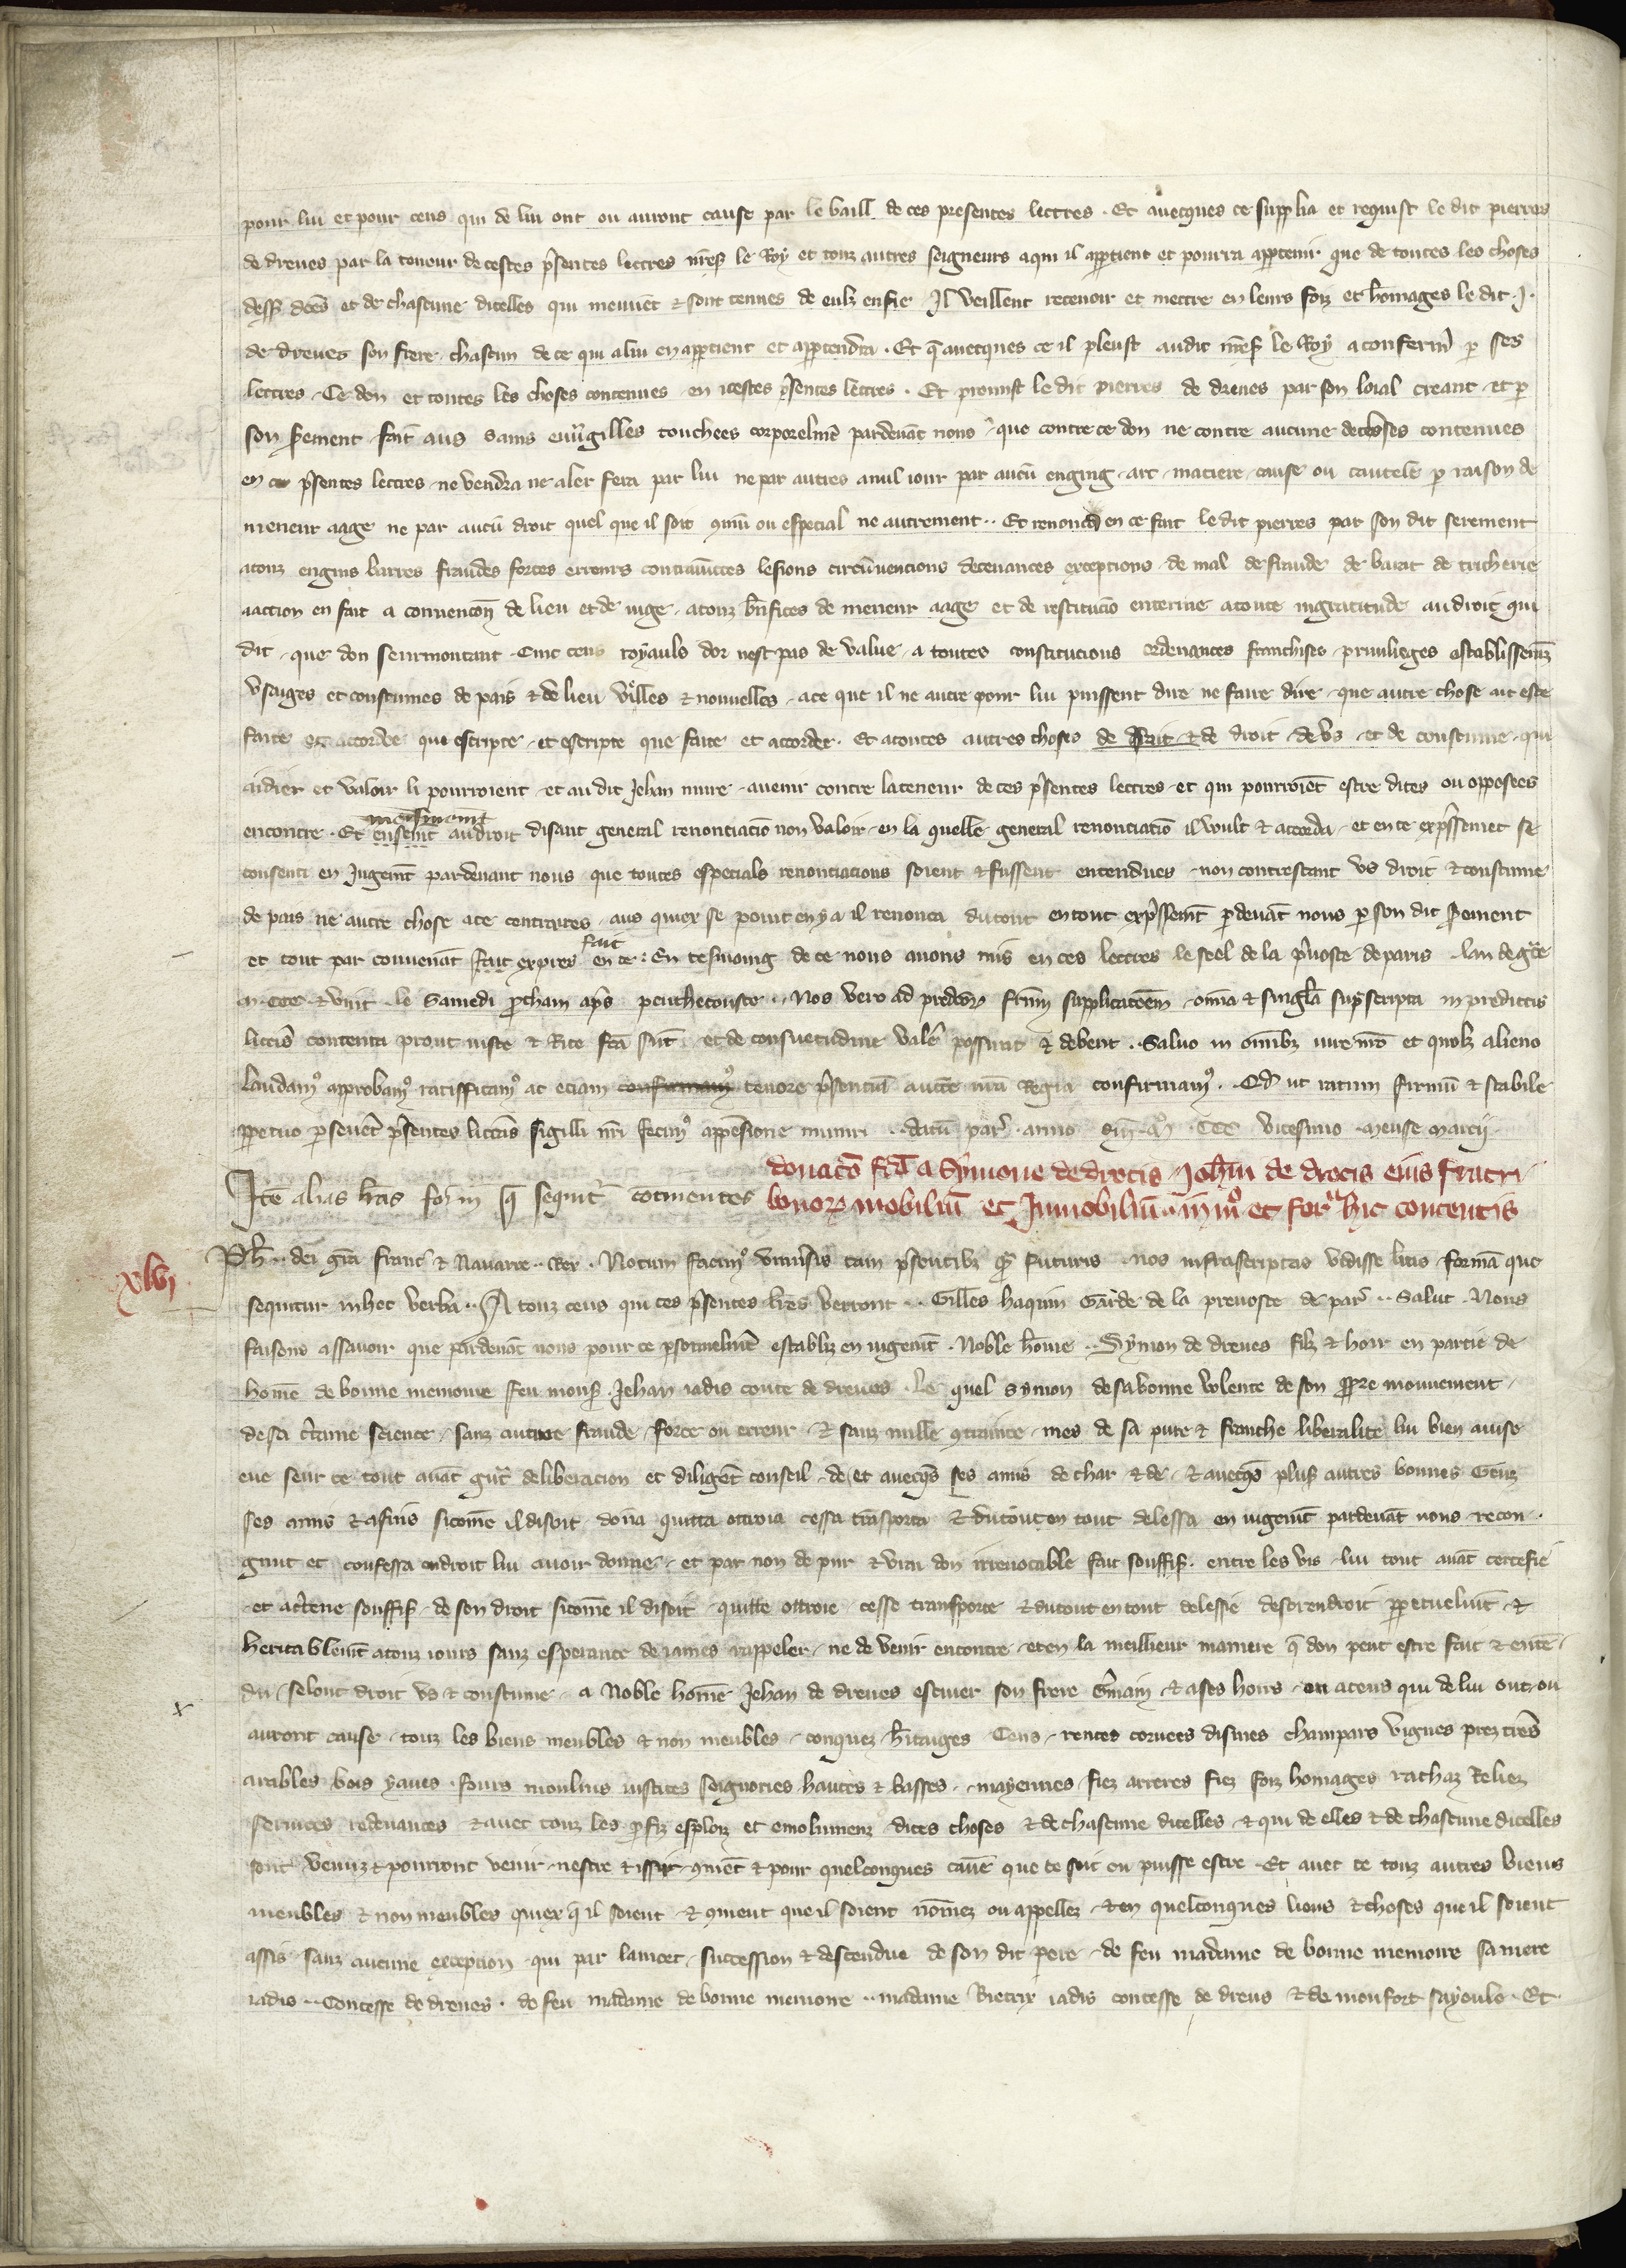 pour lui et pour ceus qui de lui ont ou auront cause par le baill de ces presentes lettres . Et auecques ce supplia et requist le dit pierres
de dreues par la teneur de cestes p̃sentes lettres nr̃e s̃ le Roy et touz autres seigneurs a qui il appartient et pourra appartenir que de toutes les choses
dess̃ dc̃es et de chascune dicelles qui meuuẽt & sont tenues de eulz en fie Il veillent receuoir et mettre en leurs foiz et hõmages le dit . J .
de dreues son frere chascun de ce qui a lui en appartient et appartendra . Et q̃ auecques ce il pleust audit nr̃e s̃ le Roy a confermer p ses
lettres . Ce don et toutes les choses contenues en icestes p̃sentes lettres . Et promist le dit pierres de dreues par son loial creant et p
son s̃ement fait aus sains euũgilles touchees corporelmẽt pardeuãt nous que contre ce don ne contre aucune de choses contenues
en ces p̃sentes lettres ne vendra ne aler fera par lui ne par autres a nul iour par aucũ enging . art . matiere . cause ou cautele p raison de
meneur aage ne par aucũ droit quel que il soit 9mũ ou especial ne autrement . Et renonca en ce fait le dit pierres par son dit serement
a touz engins barres fraudes forces erreurs contraintes lesions circũuencions deceuances exceptions de mal de fraude de barat de tricherie
a action en fait a conuencõn de lieu et de iuge . a touz bñfices de meneur aage et de restitucio enterine a toute ingratitude au droit qui
dit que don seurmontant Cinc cens royauls dor nest pas de value . a toutes constitucions ordenances franchises priuileges establissemẽz
vsaiges et coustumes de pais & de lieu viellẽs & nouuelles . a ce que il ne autre pour lui puissent dire ne faire dire que autre chose ait este
faite et accordee que escripte et escripte que faite et accordee . Et a toutes autres choses de fait & de droit de vs et de coustume qui
aidier et valoir li pourroient et au dit Jehan nuire auenir contre la teneur de ces p̃sentes lettres et qui pourroiẽt estre dites ou opposees
encontre . Et ensemẽt mesmemẽt au droit disant general renonciaciõ non valoir en la quelle general renonciatiõ il voult & accorda et en ce exp̃ssemẽt se
consenti en Jugemẽt pardeuant nous que toutes especials renonciacions soient & fussent entendues non contrestant vs droit & coustume
de pais ne autre chose a ce contraires . aus quiex se point en y a il renonca du tout en tout exp̃ssemẽt pdeuãt nous p son dit s̃ement
et tout par conuenãt fait expres fait en ce : En tesmoing de ce nous auons mis en ces lettres le seel de la p̃uoste de paris lan de gr̃ce
m . CCC & viii . le Samedi p̃chain ap̃s penthecouste . Nos vero ad predc̃orũ fr̃m supplicacõem om̃ia & singl̃a sup̃scripta in predictis
litteris contenta prout iuste & Rite fc̃a sũt et de consuetudine valẽt possunt & debent . Saluo in om̃ibz iure nr̃o et quolz alieno
laudam9 approbam9 ratifficam9 ac eciam confirmam9 tenore p̃sentiũ aucte nr̃a Regia confirmam9 . Qd̃ ut ratum firmũ & stabile
ppetuo pseuer̃t p̃sentes litteras sigilli nr̃i fecim9 appẽsione muniri . datũ par̃ . anno dñi . m̃ . CCC vicesimo mense marcii
Itẽ alias lr̃as for̃ in q̃ sequit̃ continentes donacõ fc̃ã a Symone de drocis Joh̃m de drocis eius fratri
bonorũ mobiliũ et Jnmobiliũ in m̃o et for̃ hic contentis
xlvi
Ph̃ . dei gr̃a franc̃ & Nauarre . Rex . Notum facim9 vniũsis tam p̃sentibz q̃ futuris nos infrascriptas vidisse litteras formã que
sequitur in hec verba . A touz ceus qui ces p̃sentes lr̃es verront . Gilles haquin Garde de la preuoste de par̃ . Salut . Nous
faisons assauoir que pardeuãt nous pour ce psonnelmẽt establiz en iugemẽt . Noble hõme . Symon de dreues filz & hoir en partie de
hõme de bonne memoire feu mons̃ Jehan iadis conte de dreues . Le quel symon de sa bonne volente de son ppre mouuement
de sa c̃taine science . sanz autre fraude force ou erreur . & sanz nulle 9trainte . mes de sa pure & franche liberalite lui bien auise
eue seur ce tout auãt gr̃t deliberacion et diligẽt conseil de et auecq̃s ses amis de char & de & auecq̃s plus̃ autres bonnes Genz
ses amis & afins sicomẽ il disoit donña quitta ottroia cessa trãsporta & du tout en tout delessa en iugemẽt pardeuãt nous recon .
gnut et confessa endroit lui auoir donne . et par non de pur & vrai don irreuocable fait souffis̃ . entre les vis lui tout auãt certefie
et ac̃tene souffis̃ de son droit sicõme il disoit quitte ottroie cesse transporte & du tout en tout delessie desorendroit ppetuelmẽt &
heritablemẽt a touz iours sanz esperance de iames rappeler . ne de venir encontre et en la meilleur maniere q̃ don peut estre fait & entẽ .
du selont droit vs & coustume . a Noble hõme Jehan de dreues escuier son frere G̃main & a ses hoirs ou a ceus qui de lui ont ou
auront cause . touz les biens meubles & non meubles conquez h̃itaiges Cens . rentes coruees dismes champars vignes prez tr̃es
arables bois yaues fours moulins iustices seignories hautes & basses . mayennes . fiez arreres fiez foiz homages rachaz Reliez
seruices redeuances & auec touz les p̃fiz esploiz et emolumenz dites choses & de chascune dicelles & qui de elles & de chascune dicelles
sont venuz & pourront venir nestre & issir 9mẽt & pour quelconques cause que ce soit ou puisse estre . Et auec ce touz autres biens
meubles & non meubles quiex q̃ il soient & 9ment que il soient nõmez ou appellez & en quelconques lieus & choses que il soient
assis sanz aucune exception qui par lancet . succession & descendue de son dit pere de feu madame de bonne memoire sa mere
iadis . Contesse de dreues . de feu madame de bonne memoire . madame Bietrix iadis contesse de dreus & de monfort sayeule . Et